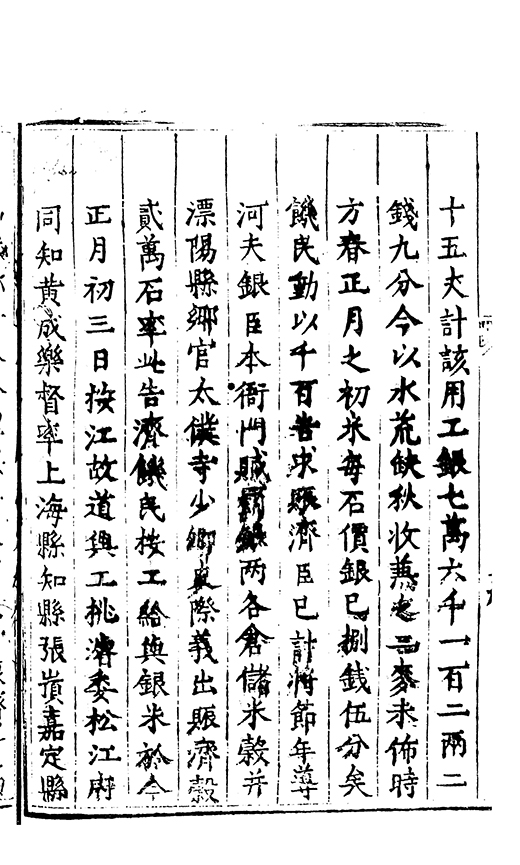 十五丈計該用工銀七萬六千一百二兩二
錢九分今以水荒缺秋收蕪之二麥未佈時
方春正月之初米每石價銀已捌錢伍分矣
饑民動以千百告求賑濟臣已計將節年導
河夫銀臣本衙門贓罰銀兩各倉儲米穀并
溧陽縣鄉官太僕寺少卿史際義出賑濟穀
貳萬石率此告濟饑民按工給與銀米於今
正月初三日按江故道興工挑濬委松江府
同知黃成樂督率上海縣知縣張嵿嘉定縣